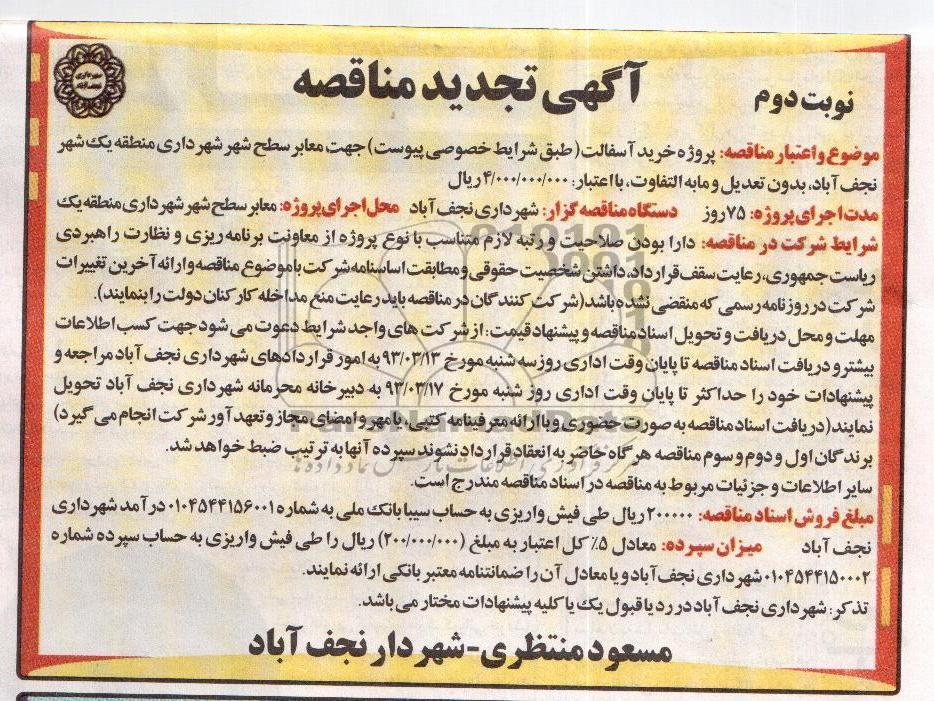 شهرداری نجف آباد
نوبت دوم
آگهی تجدید مناقصه
موضوع و اعتبار مناقصه: پروژه خرید آسفالت (طبق شرایط خصوصی پیوست) جهت معابر سطح شهر شهرداری منطقه یک شهر
نجف آباد، بدون تعدیل و مابه التفاوت، با اعتبار: ۴/۰۰۰/۰۰۰/۰۰۰ ریال
مدت اجرای پروژه: ۷۵ روز دستگاه مناقصه گزار: شهرداری نجف آباد محل اجرای پروژه: معابر سطح شهر شهرداری منطقه یک
شرایط شرکت در مناقصه: دارا بودن صلاحیت و رتبه لازم متناسب با نوع پروژه از معاونت برنامه ریزی و نظارت راهبردی
ریاست جمهوری، رعایت سقف قرارداد، داشتن شخصیت حقوقی و مطابقت اساسنامه شرکت با موضوع مناقصه و ارائه آخرین تغییرات
شرکت در روزنامه رسمی که منقضی نشده باشد (شرکت کنندگان در مناقصه باید رعایت منع مداخله کارکنان دولت را بنمایند).
مهلت و محل دریافت و تحویل اسناد مناقصه و پیشنهاد قیمت: از شرکت های واجد شرایط دعوت می شود جهت کسب اطلاعات
بیشتر و دریافت اسناد مناقصه تا پایان وقت اداری روز سه شنبه مورخ ۹۳/۰۳/۱۳ به امور قراردادهای شهرداری نجف آباد مراجعه و
پیشنهادات خود را حداکثر تا پایان وقت اداری روز شنبه مورخ ۹۳/۰۳/۱۷ به دبیرخانه محرمانه شهرداری نجف آباد تحویل
نمایند (دریافت اسناد مناقصه به صورت حضوری و با ارائه معرفینامه کتبی، با مهر و امضای مجاز و تعهد آور شرکت انجام می گیرد)
برندگان اول و دوم و سوم مناقصه هر گاه حاضر به انعقاد قرارداد نشوند سپرده آنها به ترتیب ضبط خواهد شد.
سایر اطلاعات و جزئیات مربوط به مناقصه در اسناد مناقصه مندرج است.
مبلغ فروش اسناد مناقصه: ۲۰۰۰۰۰ ریال طی فیش واریزی به حساب سیبا بانک ملی به شماره ۰۱۰۴۵۴۴۱۵۶۰۰۱ درآمد شهرداری
نجف آباد میزان سپرده: معادل ۵٪ کل اعتبار به مبلغ (۲۰۰/۰۰۰/۰۰۰) ریال را طی فیش واریزی به حساب سپرده شماره
۰۱۰۴۵۴۴۱۵۰۰۰۲ شهرداری نجف آباد و یا معادل آن را ضمانتنامه معتبر بانکی ارائه نمایند.
تذکر: شهرداری نجف آباد در رد یا قبول یک یا کلیه پیشنهادات مختار می باشد.
مسعود منتظری - شهردار نجف آباد